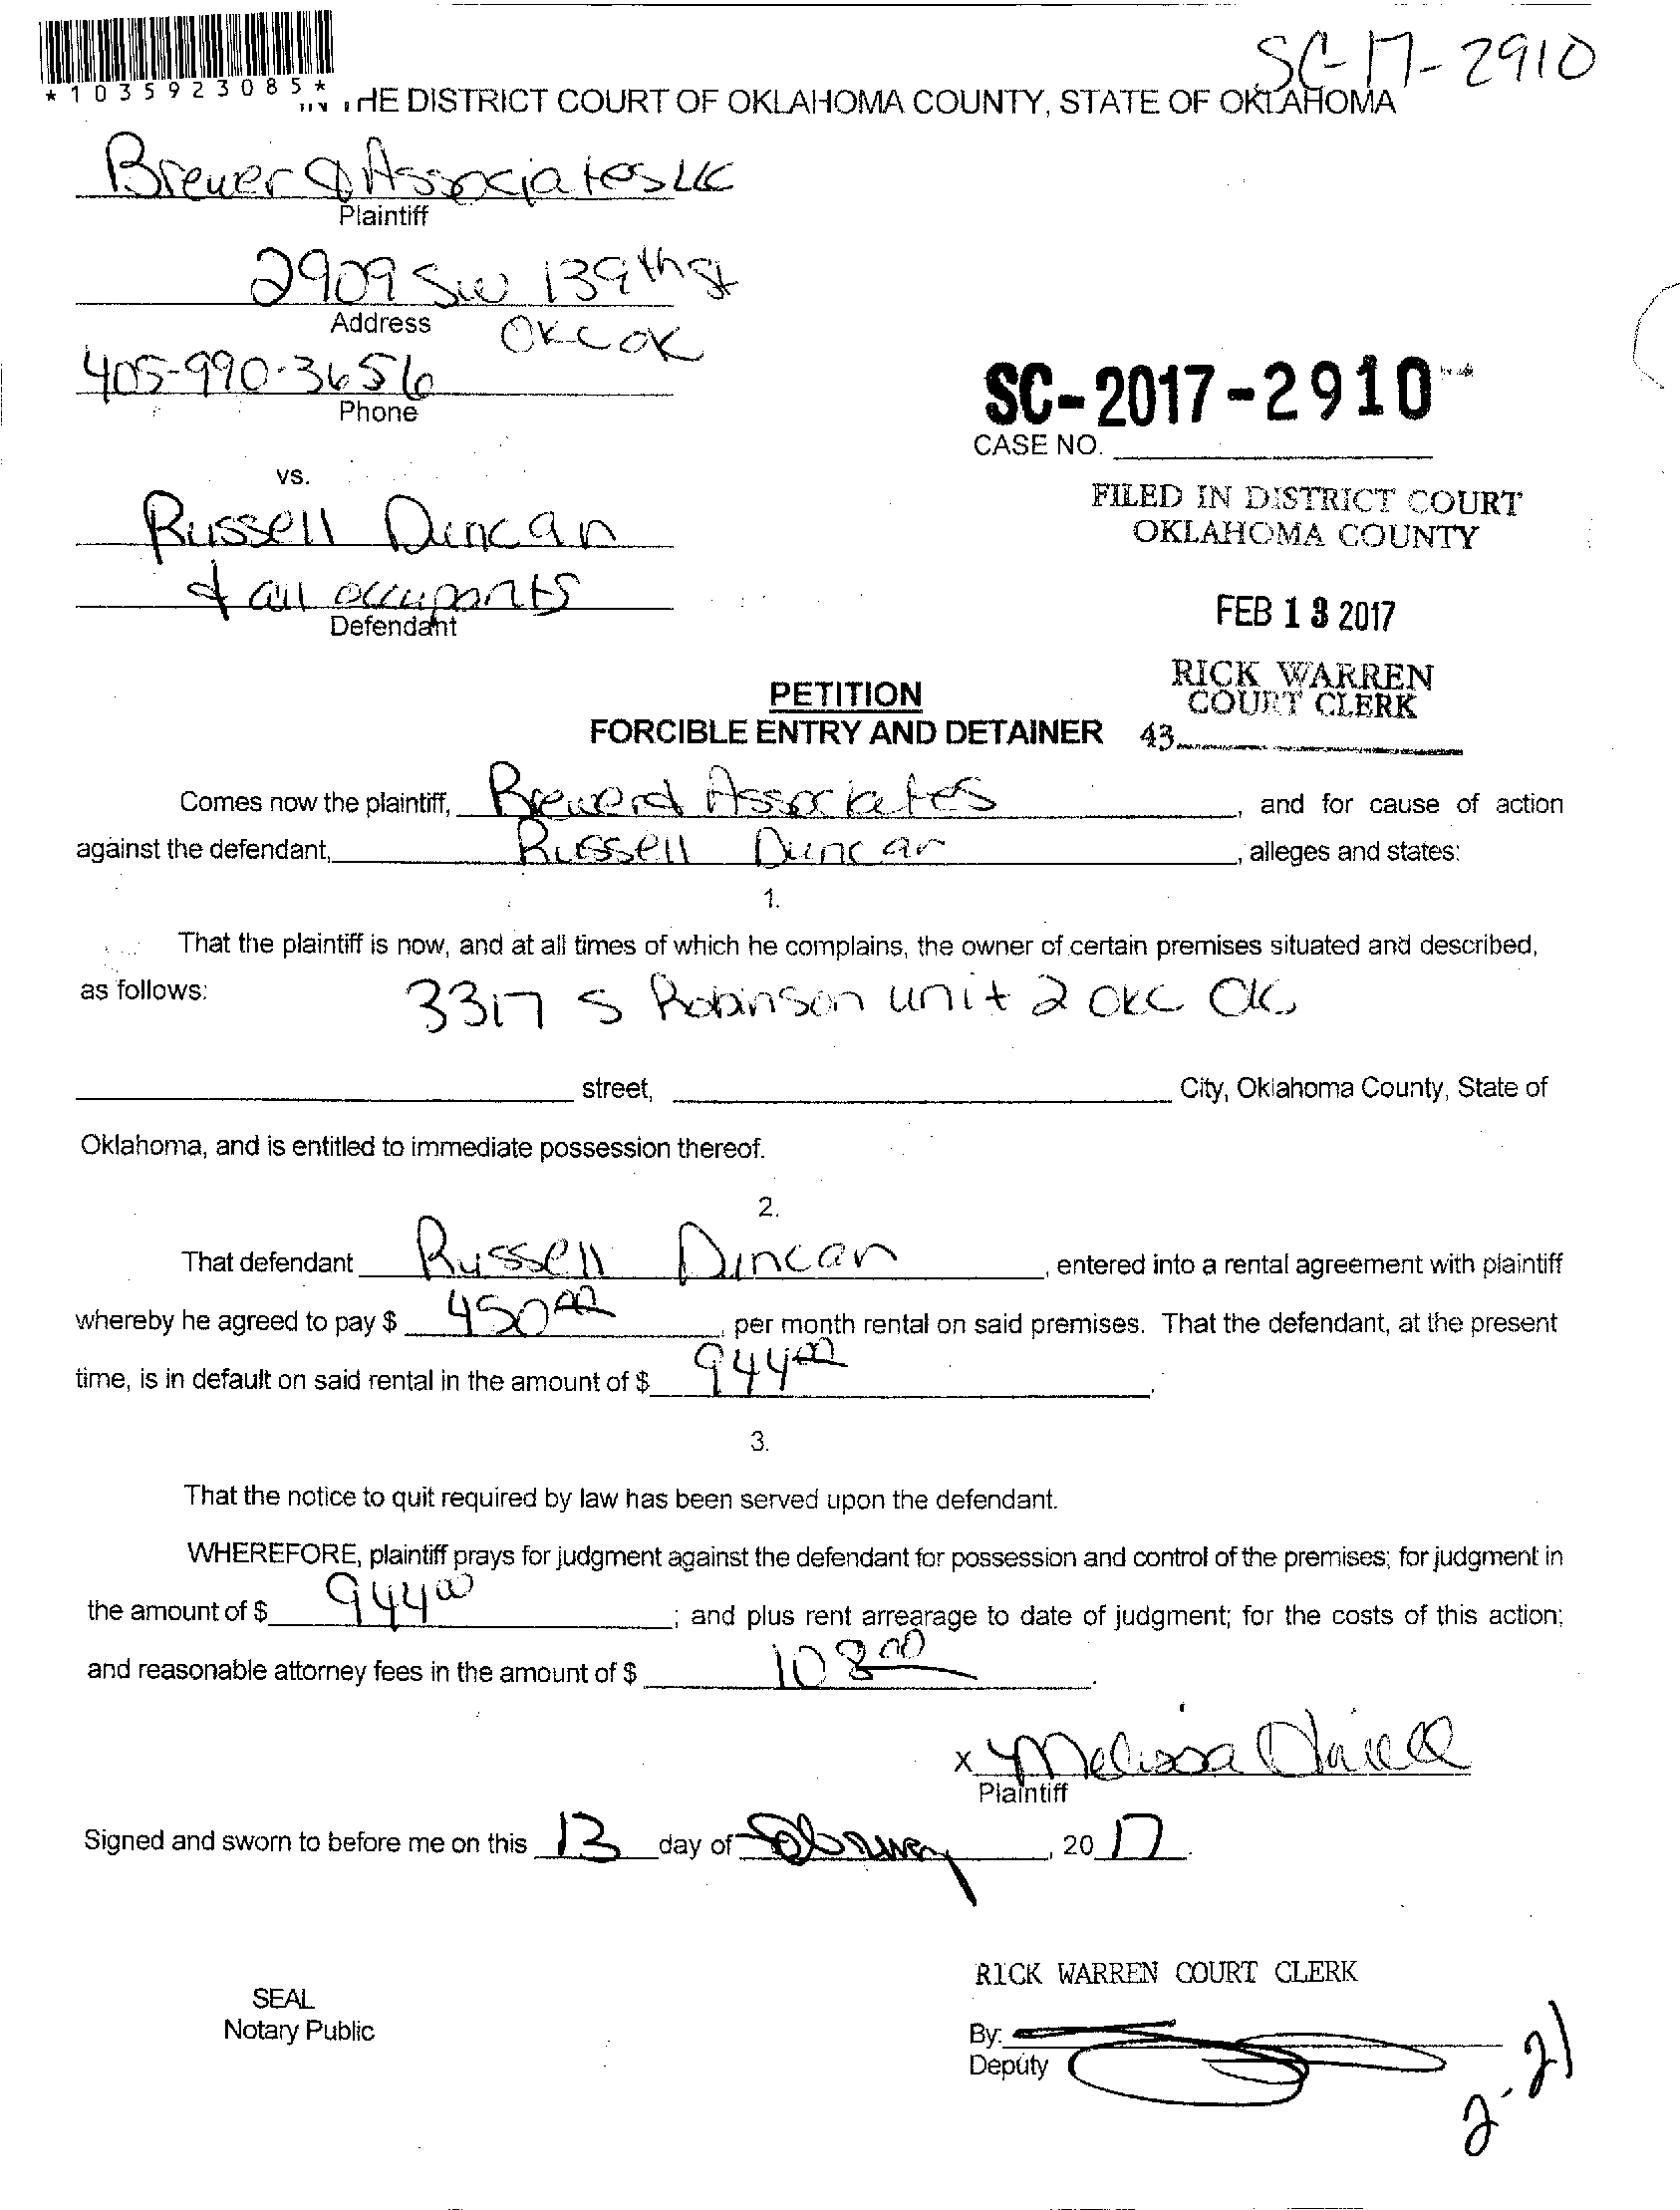 SC-17-2910
*1035923085*
THE DISTRICT COURT OF OKLAHOMA COUNTY, STATE OF OKLAHOMA
Brewer & Associates LLC
Plaintiff
2909 SW 139th St
Address
OKC OK
405-990-3656
Phone
SC-2017-2910
CASE NO.
vs.
FILED IN DISTRICT COURT
OKLAHOMA COUNTY
Russell Duncan
& all occupants
Defendant
FEB 13 2017
RICK WARREN
COURT CLERK
43
PETITION
FORCIBLE ENTRY AND DETAINER
Comes now the plaintiff, Brewer & Associates, and for cause of action
against the defendant, Russell Duncan, alleges and states:
1.
That the plaintiff is now, and at all times of which he complains, the owner of certain premises situated and described,
as follows: 3317 S Robinson unit 2 OKC OK
street, City, Oklahoma County, State of
Oklahoma, and is entitled to immediate possession thereof.
2.
That defendant Russell Duncan, entered into a rental agreement with plaintiff
whereby he agreed to pay $ 450 00, per month rental on said premises. That the defendant, at the present
time, is in default on said rental in the amount of $ 944 00.
3.
That the notice to quit required by law has been served upon the defendant.
WHEREFORE, plaintiff prays for judgment against the defendant for possession and control of the premises; for judgment in
the amount of $ 944 00; and plus rent arrearage to date of judgment; for the costs of this action;
and reasonable attorney fees in the amount of $ 108 00.
x Melissa
Plaintiff
Signed and sworn to before me on this 13 day of February, 20 17.
RICK WARREN COURT CLERK
SEAL
Notary Public
By:
Deputy
2-21